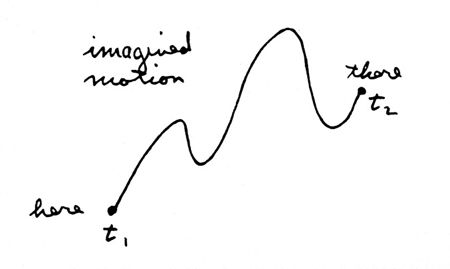 imagined
motion
there
t₂
here
t₁